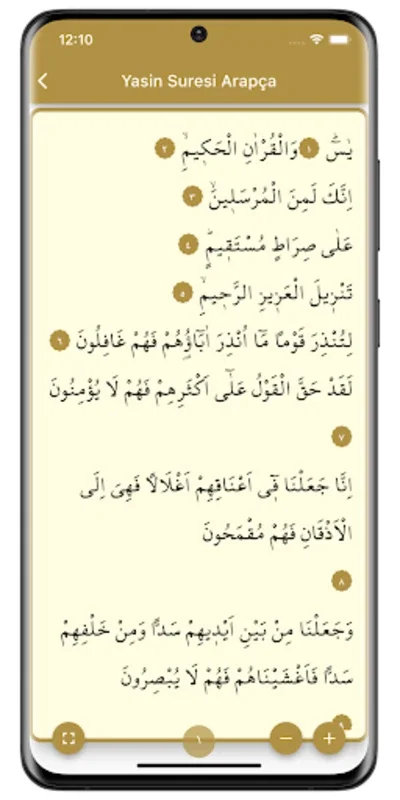 12:10
Yasin Suresi Arapça
يٰسٓ ۚ ١ وَالْقُرْاٰنِ الْحَك۪يمِۙ ٢
اِنَّكَ لَمِنَ الْمُرْسَل۪ينَۙ ٣
عَلٰى صِرَاطٍ مُسْتَق۪يمٍۜ ٤
تَنْز۪يلَ الْعَز۪يزِ الرَّح۪يمِۙ ٥
لِتُنْذِرَ قَوْمًا مَٓا اُنْذِرَ اٰبَٓاؤُ۬هُمْ فَهُمْ غَافِلُونَ ٦
لَقَدْ حَقَّ الْقَوْلُ عَلٰٓى اَكْثَرِهِمْ فَهُمْ لَا يُؤْمِنُونَ
٧
اِنَّا جَعَلْنَا ف۪ٓي اَعْنَاقِهِمْ اَغْلَالًا فَهِيَ اِلَى
الْاَذْقَانِ فَهُمْ مُقْمَحُونَ
٨
وَجَعَلْنَا مِنْ بَيْنِ اَيْد۪يهِمْ سَدًّا وَمِنْ خَلْفِهِمْ
سَدًّا فَاَغْشَيْنَاهُمْ فَهُمْ لَا يُبْصِرُونَ
٩
١